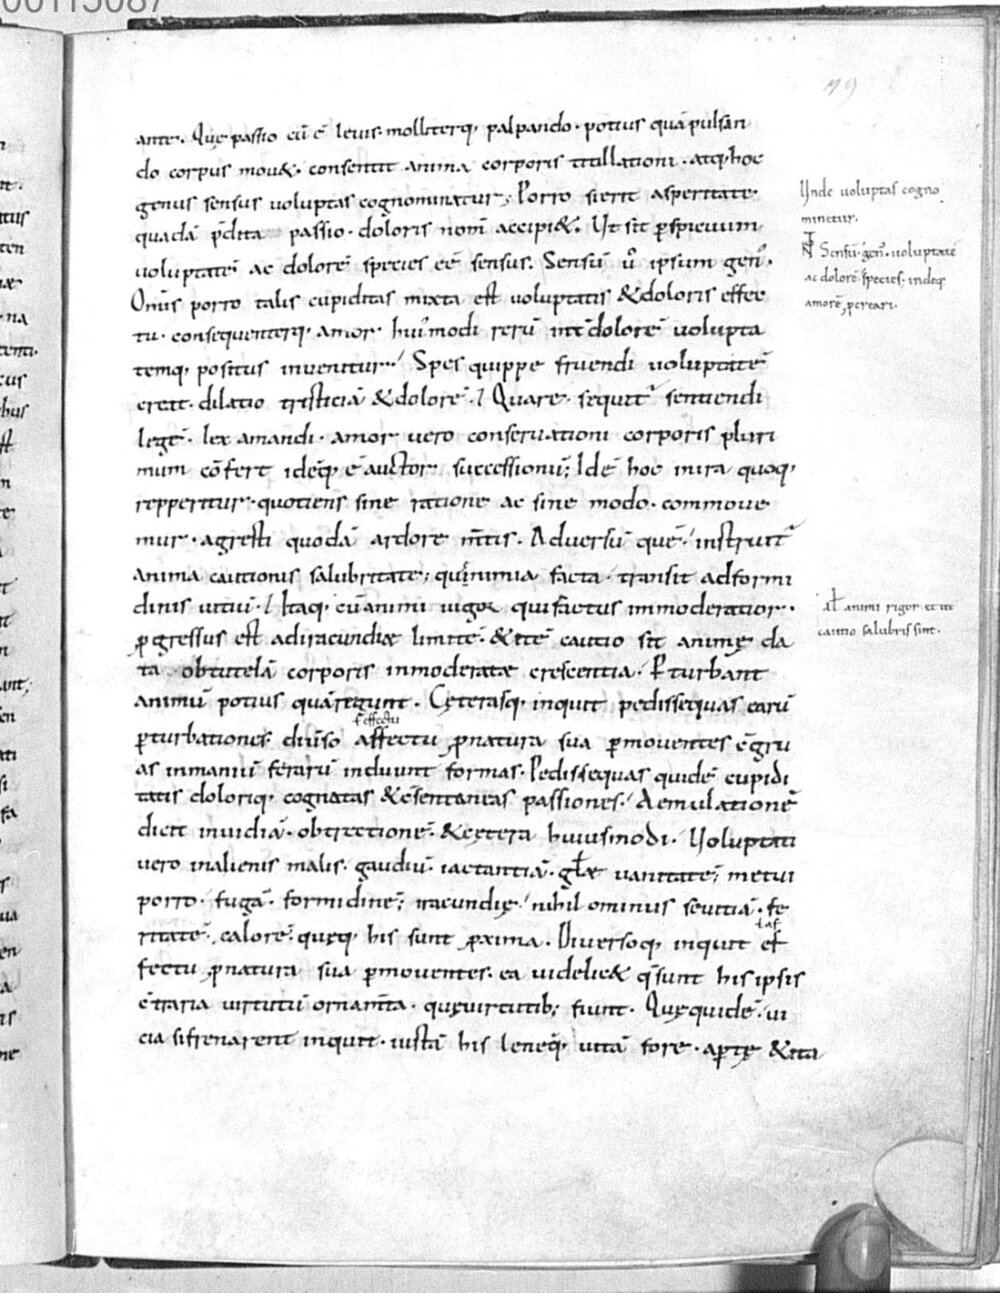 00115087
79
ante. Quę passio cū ē leuis molliterq; palpando. potius quā pulsan
do corpus mou&. consentit anima corporis titillationi. atq; hoc
genus sensus uoluptas cognominatur. Porro si erit asperitate
quadā p̄dita passio. doloris nom̄ accipi&. Ut sit ꝑspicuum
uoluptatē ac dolorē species eē sensus. Sensū ū ipsum genꝰ.
Om̄is porro talis cupiditas mixta est uoluptatis & doloris effec
tu. consequenterq; amor huiꝰmodi rerū int̄ dolorē uolupta
temq; positus inuenitur. Spes quippe fruendi uoluptatē
creat. dilatio tristiciā & dolorē. Quare sequit᷑ sentiendi
legē. lex amandi. amor uero conseruationi corporis pluri
mum cōfert ideq; ē auctor successionū; Idē hoc in ira quoq;
repperitur. quotiens sine ratione ac sine modo. commoue
mur. agresti quodā ardore m̄tis. Aduersū quē instruit᷑
anima cautionis salubritate; quę nimia facta. transit ad formi
dinis uitiū. Itaq; cū animi uigor qui factus immoderatior.
ꝓgressus est ad iracundiæ limitē. & itē cautio sit animę da
ta ob tutelā corporis inmoderatæ crescentia. ꝑturbant
animū potius quā regunt. Cęterasq; inquit pedissequas earū
ł effectu
ꝑturbationes diuiso affectu ꝓ natura sua ꝑmouentes ęgru
as inmaniū ferarū induunt formas. Pedissequas quidē cupidi
tatis dolorisq; cognatas & c̄sentaneas passiones. Aemulationē
dicit inuidiā. obtrectionē. & cętera huiusmodi. Uoluptati
uero in alienis malis. gaudiū. iactantiā. gl̄æ uanitatē; metui
porro. fugā. formidinē; iracundię nihilominus seuitiā. fe
ł af
ritatē. calorē. quęq; his sunt ꝓxima. Diuersoq; inquit ef
fectu ꝓ natura sua ꝑmouentes. ea uidelic& q̄ sunt his ipsis
c̄traria uirtutū ornam̄ta. quę uirtutib; fiunt. Quę quidē ui
cia si frenarent inquit. iustā his leneq; uitā fore. aꝑtę & ita
Unde uoluptas cogno
minetur.
Sensū genꝰ. uoluptatē
ac dolorē species. indeq;
amorē ꝓcreari.
al̄ animi rigor et ut
cautio salubris sint.